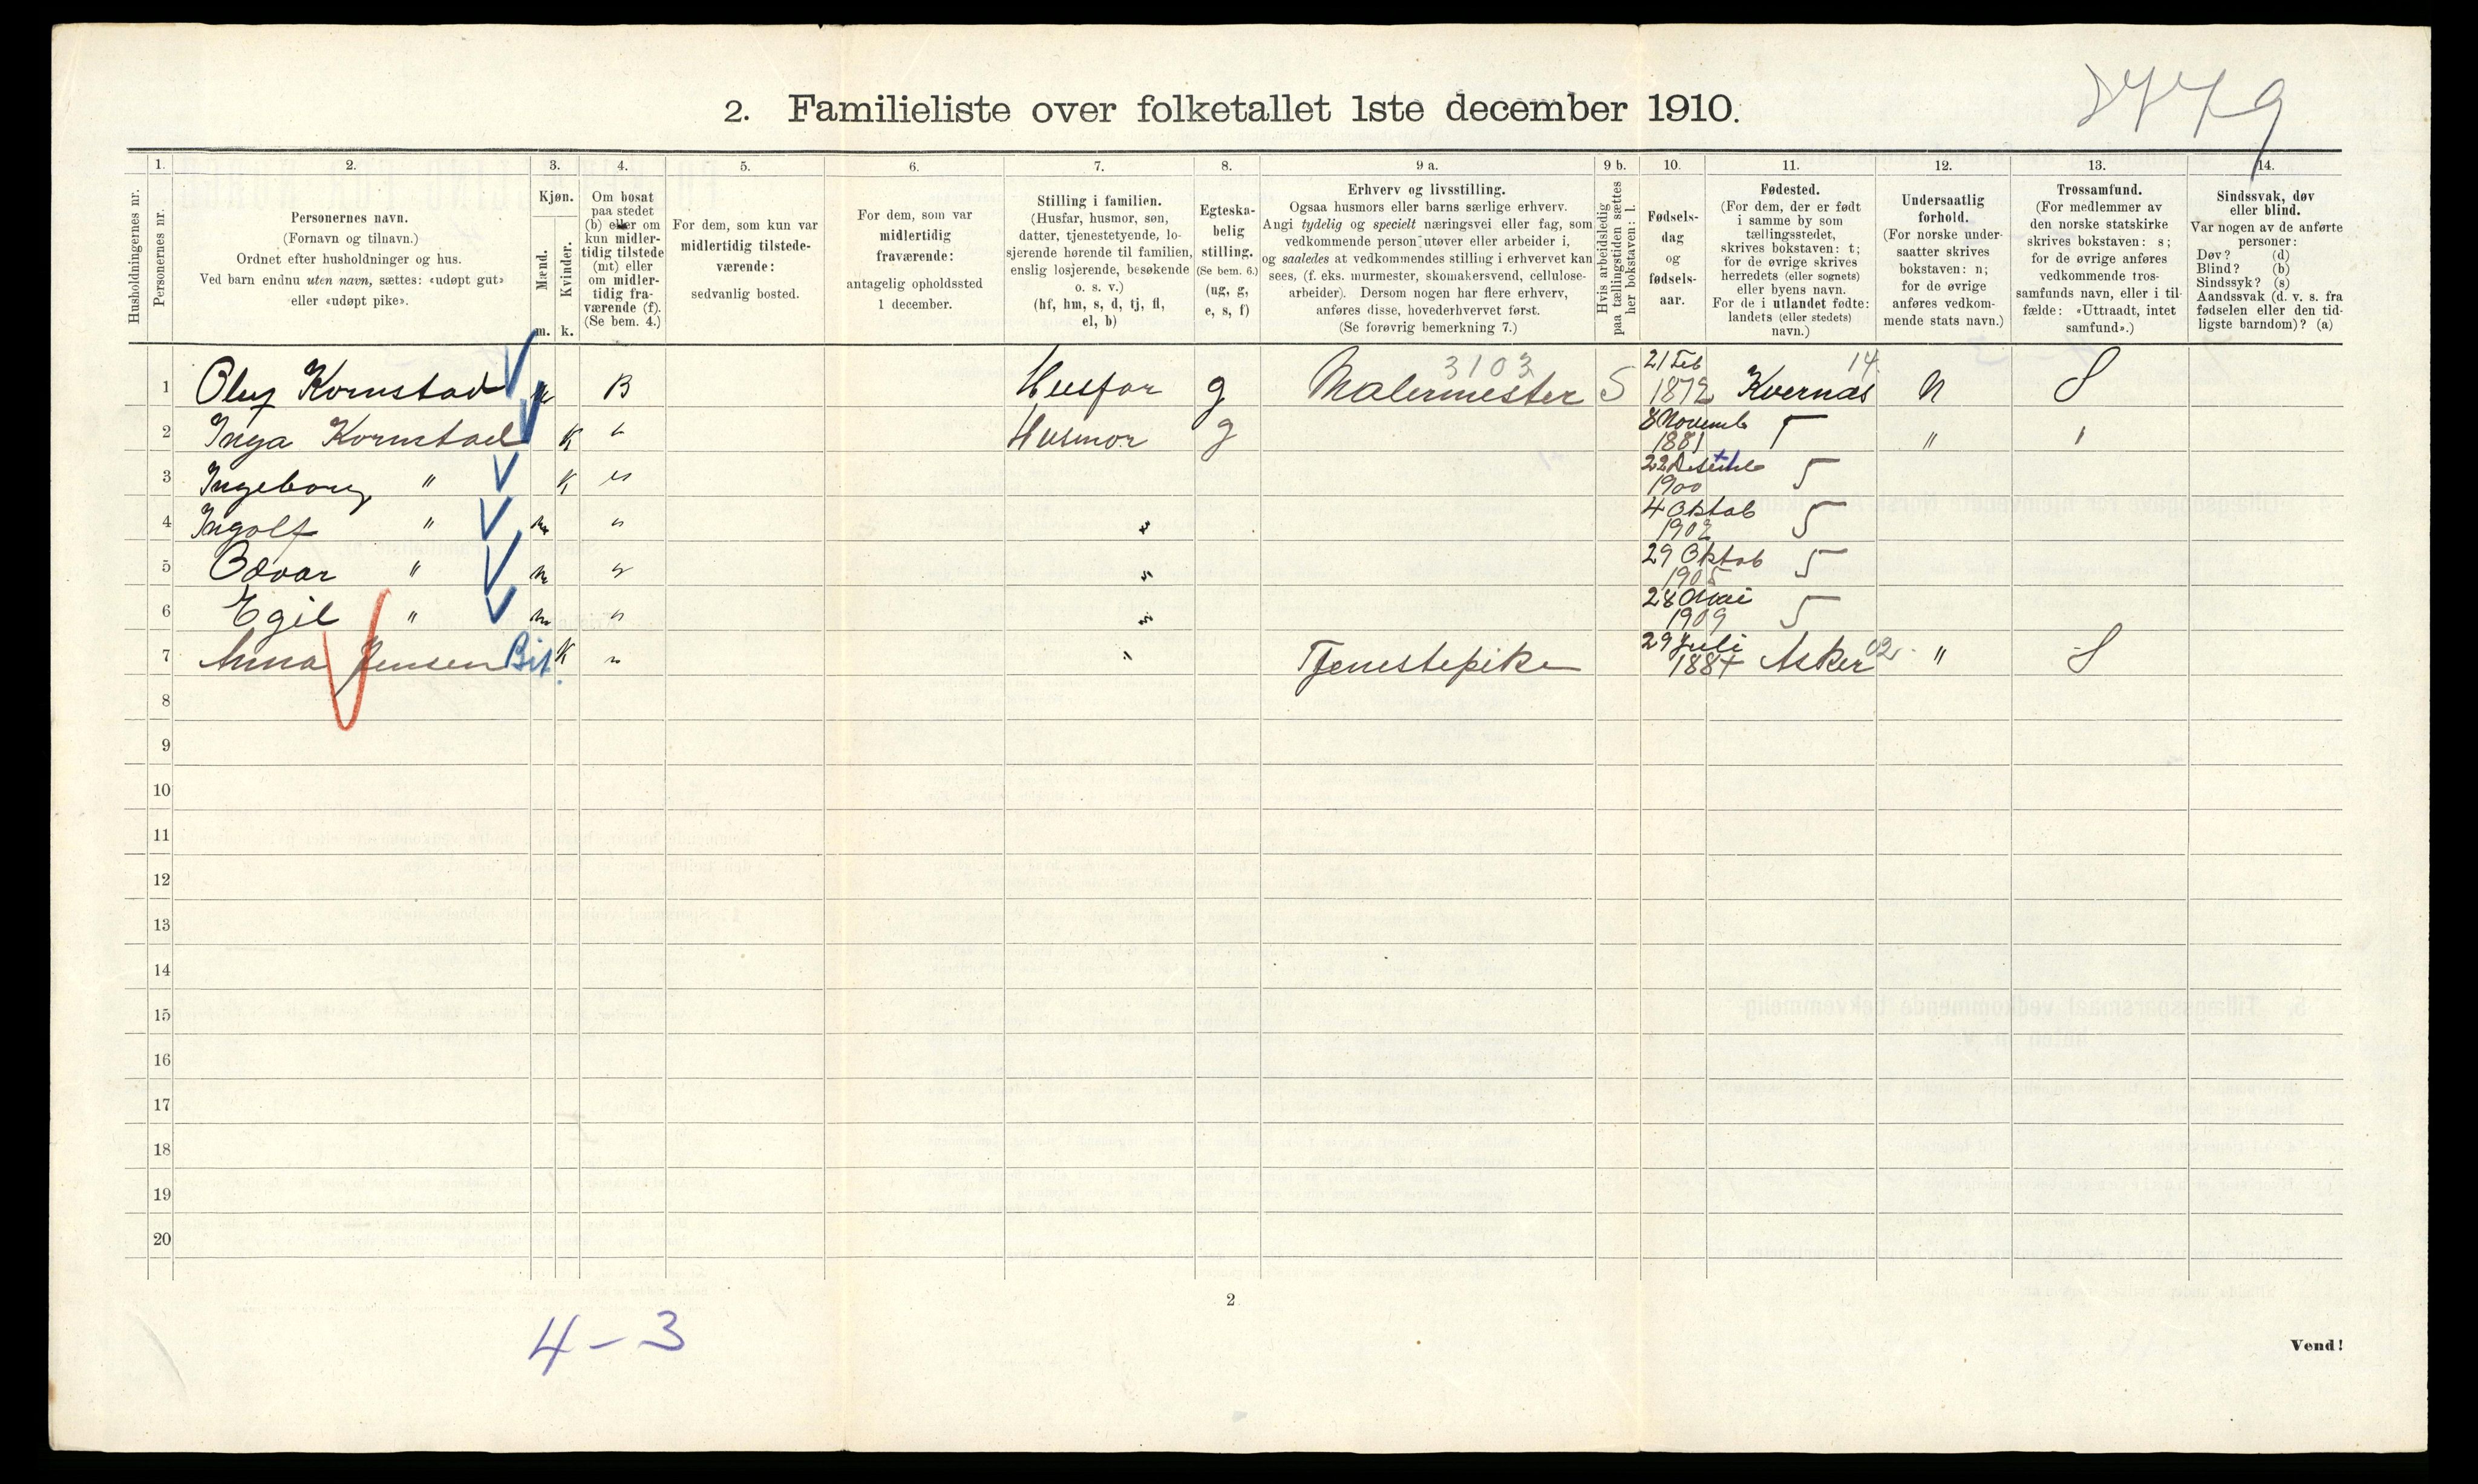 2. Familieliste over folketallet 1ste december 1910.
1. 2. 3. 4. 5. 6. 7. 8. 9 a. 9 b. 10. 11. 12. 13. 14.
Husholdningernes nr.
Personernes nr.
Personernes navn.
(Fornavn og tilnavn.)
Ordnet efter husholdninger og hus.
Ved barn endnu uten navn, sættes: «udøpt gut»
eller «udøpt pike».
Kjøn.
Mænd.
Kvinder.
m. k.
Om bosat
paa stedet
(b) eller om
kun midler-
tidig tilstede
(mt) eller
om midler-
tidig fra-
værende (f).
(Se bem. 4.)
For dem, som kun var
midlertidig tilstede-
værende:
sedvanlig bosted.
For dem, som var
midlertidig
fraværende:
antagelig opholdssted
1 december.
Stilling i familien.
(Husfar, husmor, søn,
datter, tjenestetyende, lo-
sjerende hørende til familien,
enslig losjerende, besøkende
o. s. v.)
(hf, hm, s, d, tj, fl,
el, b)
Egteska-
belig
stilling.
(Se bem. 6.)
(ug, g,
e, s, f)
Erhverv og livsstilling.
Ogsaa husmors eller barns særlige erhverv.
Angi tydelig og specielt næringsvei eller fag, som
vedkommende person utøver eller arbeider i,
og saaledes at vedkommendes stilling i erhvervet kan
sees, (f. eks. murmester, skomakersvend, cellulose-
arbeider). Dersom nogen har flere erhverv,
anføres disse, hovederhvervet først.
(Se forøvrig bemerkning 7.)
Hvis arbeidsledig
paa tællingstiden sættes
her bokstaven: l.
Fødsels-
dag
og
fødsels-
aar.
Fødested.
(For dem, der er født
i samme by som
tællingsstedet,
skrives bokstaven: t;
for de øvrige skrives
herredets (eller sognets)
eller byens navn.
For de i utlandet fødte:
landets (eller stedets)
navn.)
Undersaatlig
forhold.
(For norske under-
saatter skrives
bokstaven: n;
for de øvrige
anføres vedkom-
mende stats navn.)
Trossamfund.
(For medlemmer av
den norske statskirke
skrives bokstaven: s;
for de øvrige anføres
vedkommende tros-
samfunds navn, eller i til-
fælde: «Uttraadt, intet
samfund».)
Sindssvak, døv
eller blind.
Var nogen av de anførte
personer:
Døv? (d)
Blind? (b)
Sindssyk? (s)
Aandssvak (d. v. s. fra
fødselen eller den tid-
ligste barndom)? (a)
3103 21 Feb 14.
1 Oluf Kornstad m B Husfar g Malermester S 1872 Kvernæs n S
8 Novemb
2 Inga Kornstad K " Husmor g 1881 T " "
3 Ingeborg " K " 1900
4 Oktob
4 Ingolf " m " " 1902
29 Oktob
5 Odvar " m " " 1905
28 Mai
6 Egil " m " " 1909
29 Juli
7 Anna Jensen Bit. K " " Tjenestepike 1884 Asker 02. " S
8
9
10
11
12
13
14
15
16
17
18
19
20
2
4 - 3
Vend!